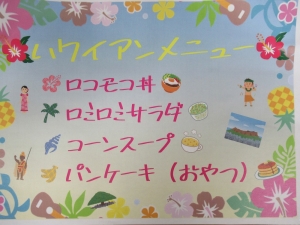 ハワイアンメニュー
ロコモコ丼
ロミロミサラダ
コーンスープ
パンケーキ（おやつ）